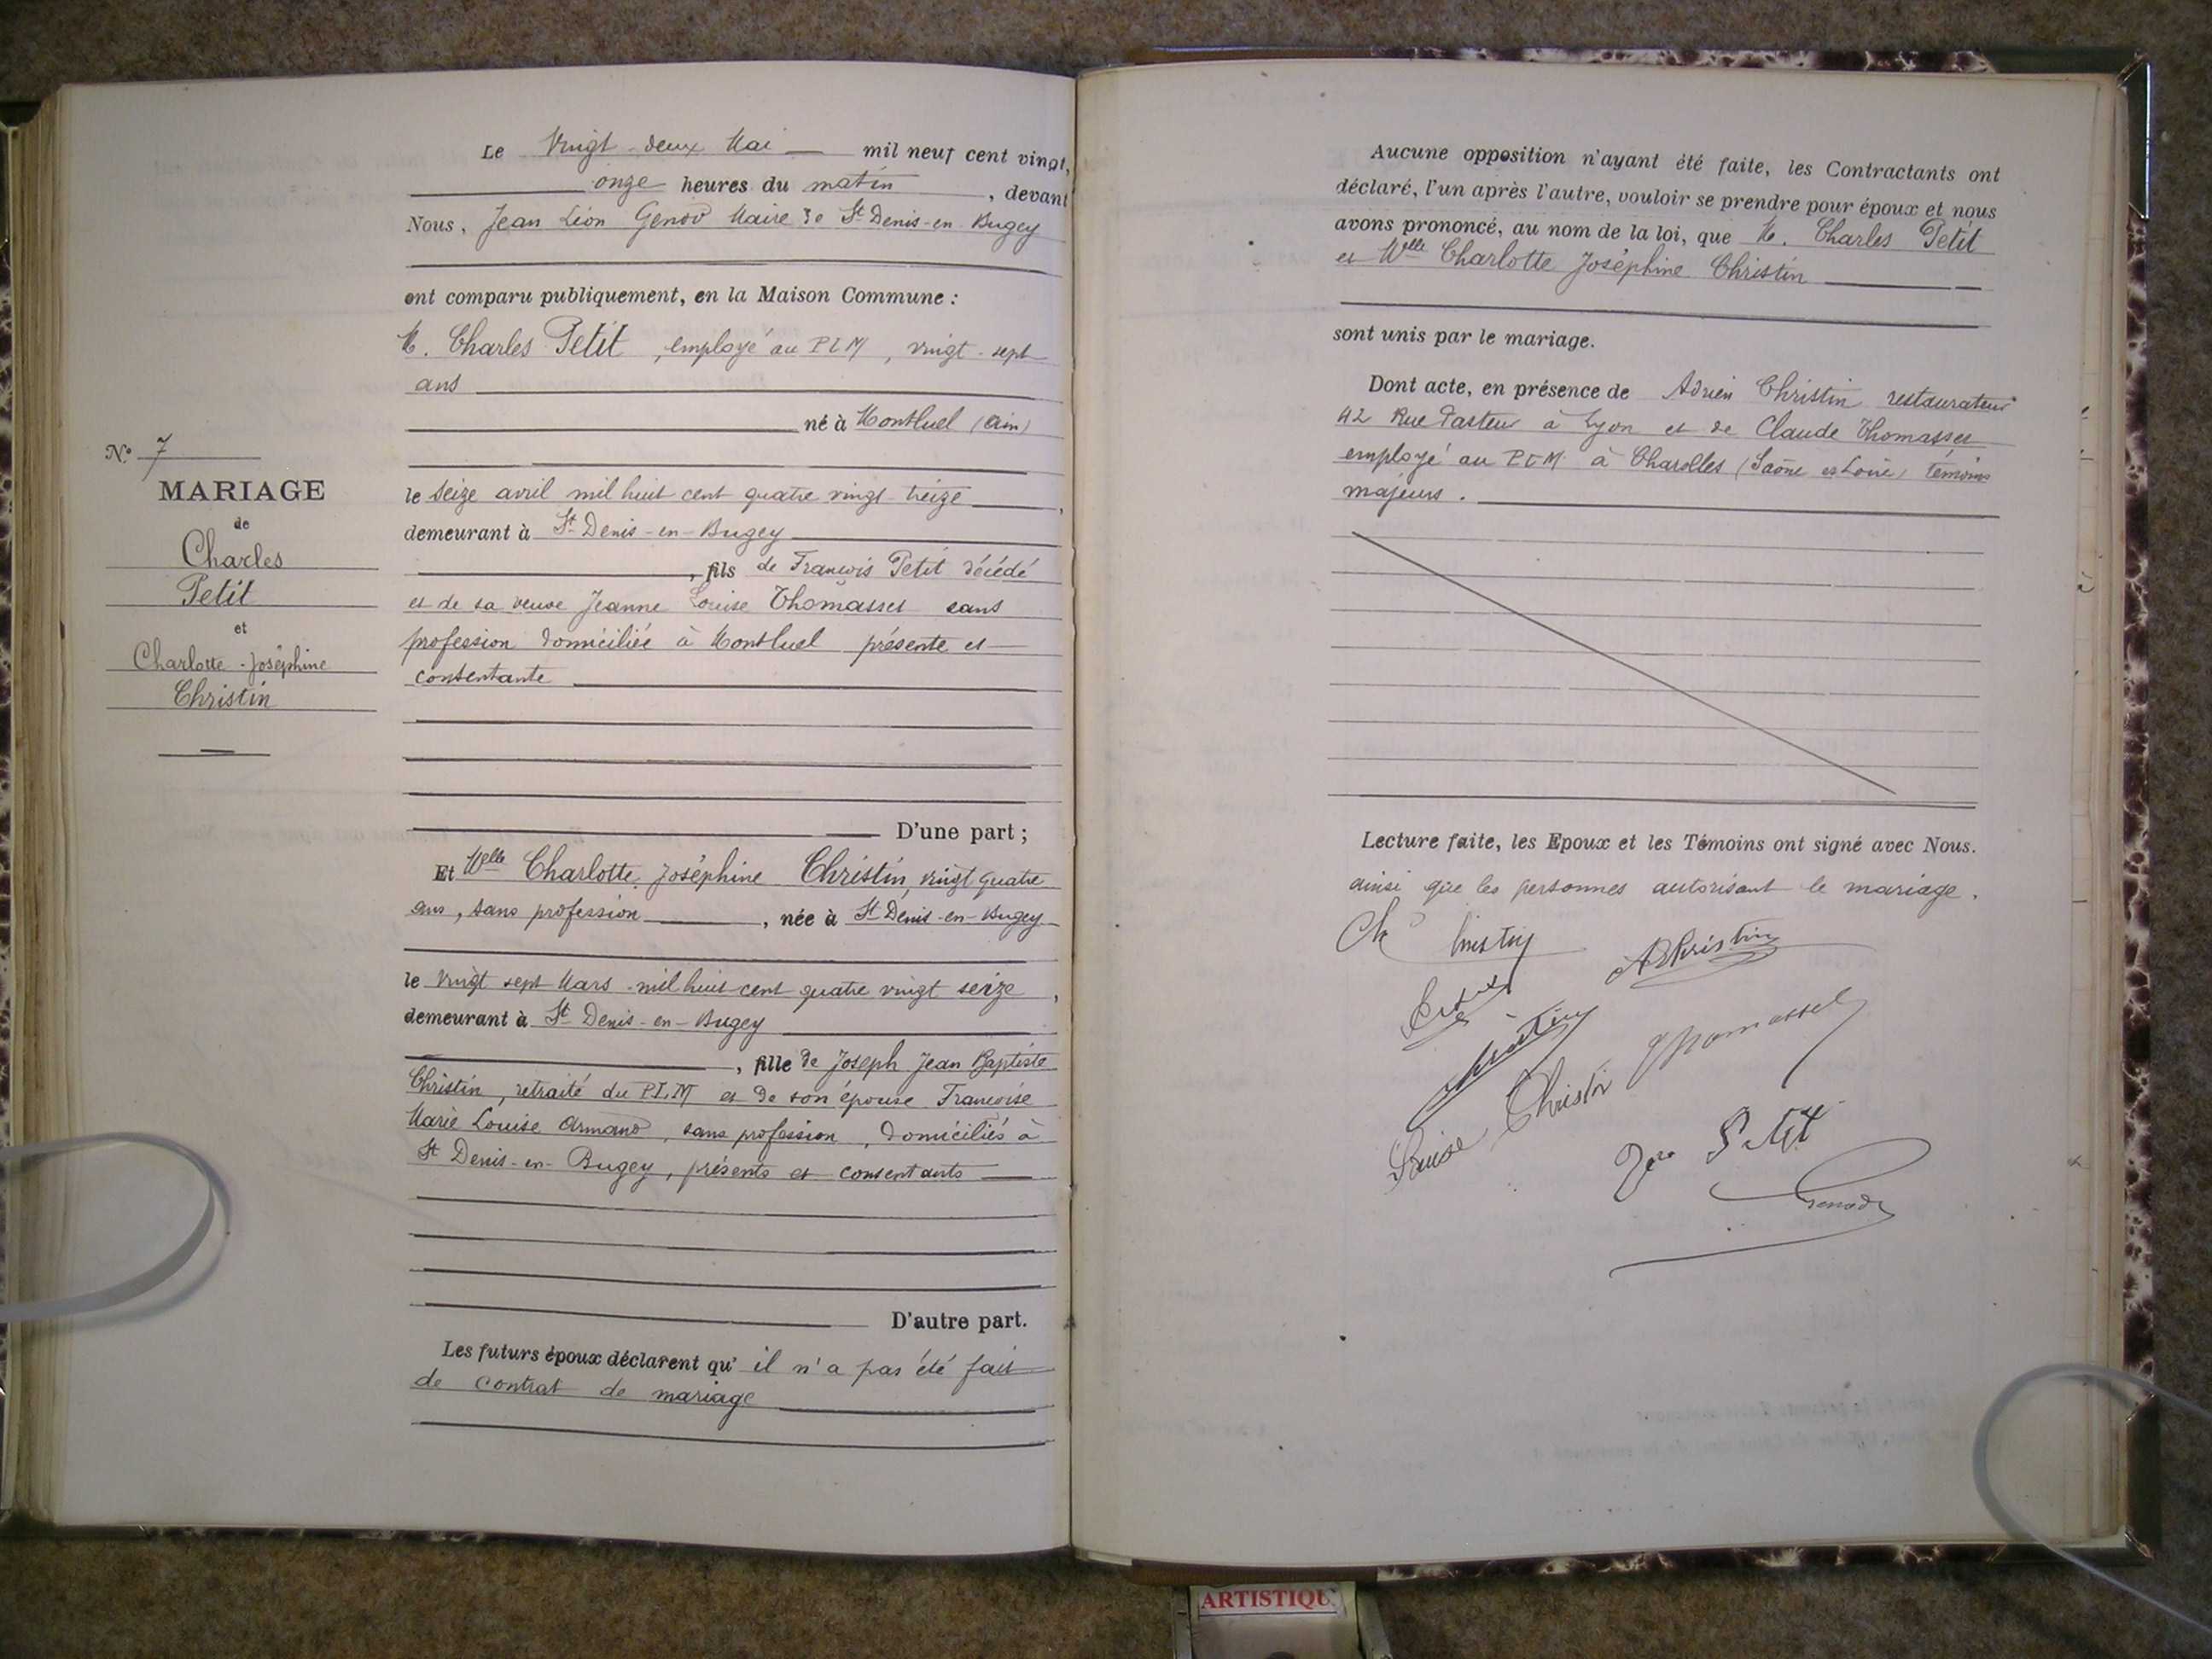 Le Vingt-deux Mai mil neuf cent vingt,
onze heures du matin, devant
Nous, Jean Léon Genod Maire de St Denis-en-Bugey
ont comparu publiquement, en la Maison Commune :
M. Charles Petit, employé au PLM, vingt-sept
ans
né à Montluel (Ain)
le seize avril mil huit cent quatre vingt treize,
demeurant à St Denis-en-Bugey
, fils de François Petit décédé
et de sa veuve Jeanne Louise Thomasset sans
profession domiciliée à Montluel présente et
consentante
D'une part ;
Et Melle Charlotte Joséphine Christin, vingt quatre
ans, sans profession, née à St Denis-en-Bugey
le vingt sept Mars mil huit cent quatre vingt seize,
demeurant à St Denis-en-Bugey
, fille de Joseph Jean Baptiste
Christin, retraité du PLM et de son épouse Françoise
Marie Louise Armand, sans profession, domiciliés à
St Denis-en-Bugey, présents et consentants
D'autre part.
Les futurs époux déclarent qu'il n'a pas été fait
de contrat de mariage
N° 7
MARIAGE
de
Charles
Petit
et
Charlotte-Joséphine
Christin
Aucune opposition n'ayant été faite, les Contractants ont
déclaré, l'un après l'autre, vouloir se prendre pour époux et nous
avons prononcé, au nom de la loi, que M. Charles Petit
et Melle Charlotte Joséphine Christin
sont unis par le mariage.
Dont acte, en présence de Adrien Christin restaurateur
42 Rue Pasteur à Lyon et de Claude Thomasset
employé au PLM à Charolles (Saône et Loire) témoins
majeurs.
Lecture faite, les Epoux et les Témoins ont signé avec Nous.
ainsi que les personnes autorisant le mariage.
A Christin
Thomasset
Louise Christin
Petit
Genod
ARTISTIQU